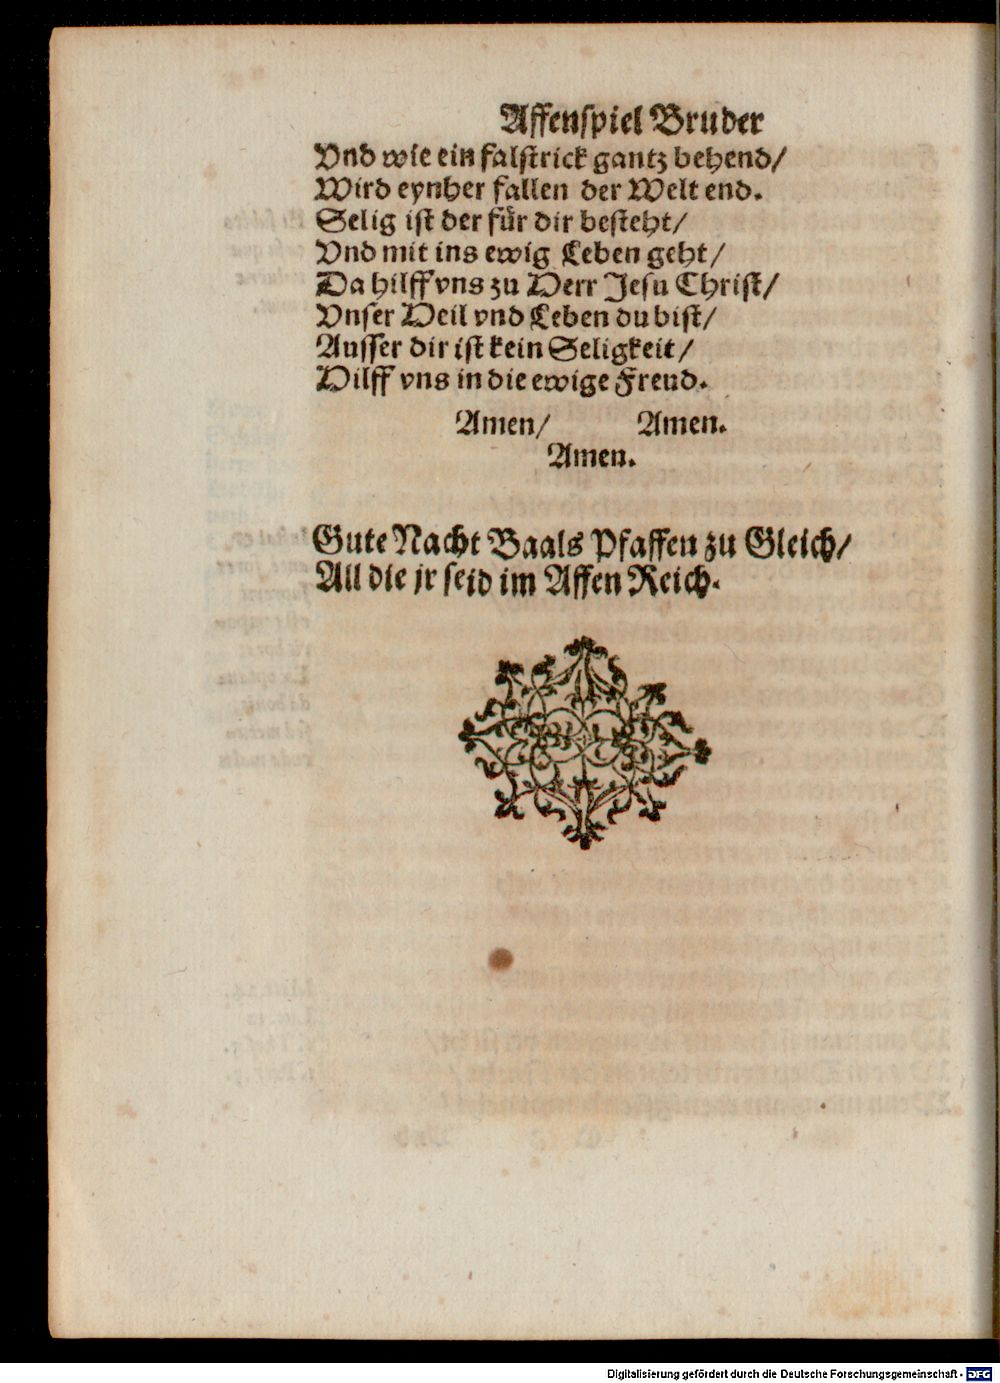 Affenſpiel Bruder
Vnd wie ein falſtrick gantz behend/
Wird eynher fallen der Welt end.
Selig iſt der für dir beſteht/
Vnd mit ins ewig Leben geht/
Da hilff vns zu Herr Jeſu Chriſt/
Vnſer Heil vnd Leben du biſt/
Auſſer dir iſt kein Seligkeit/
Hilff vns in die ewige Freud.
Amen/ Amen.
Amen.
Gute Nacht Baals Pfaffen zu Gleich/
All die jr ſeid im Affen Reich.
Digitalisierung gefördert durch die Deutsche Forschungsgemeinschaft - DFG